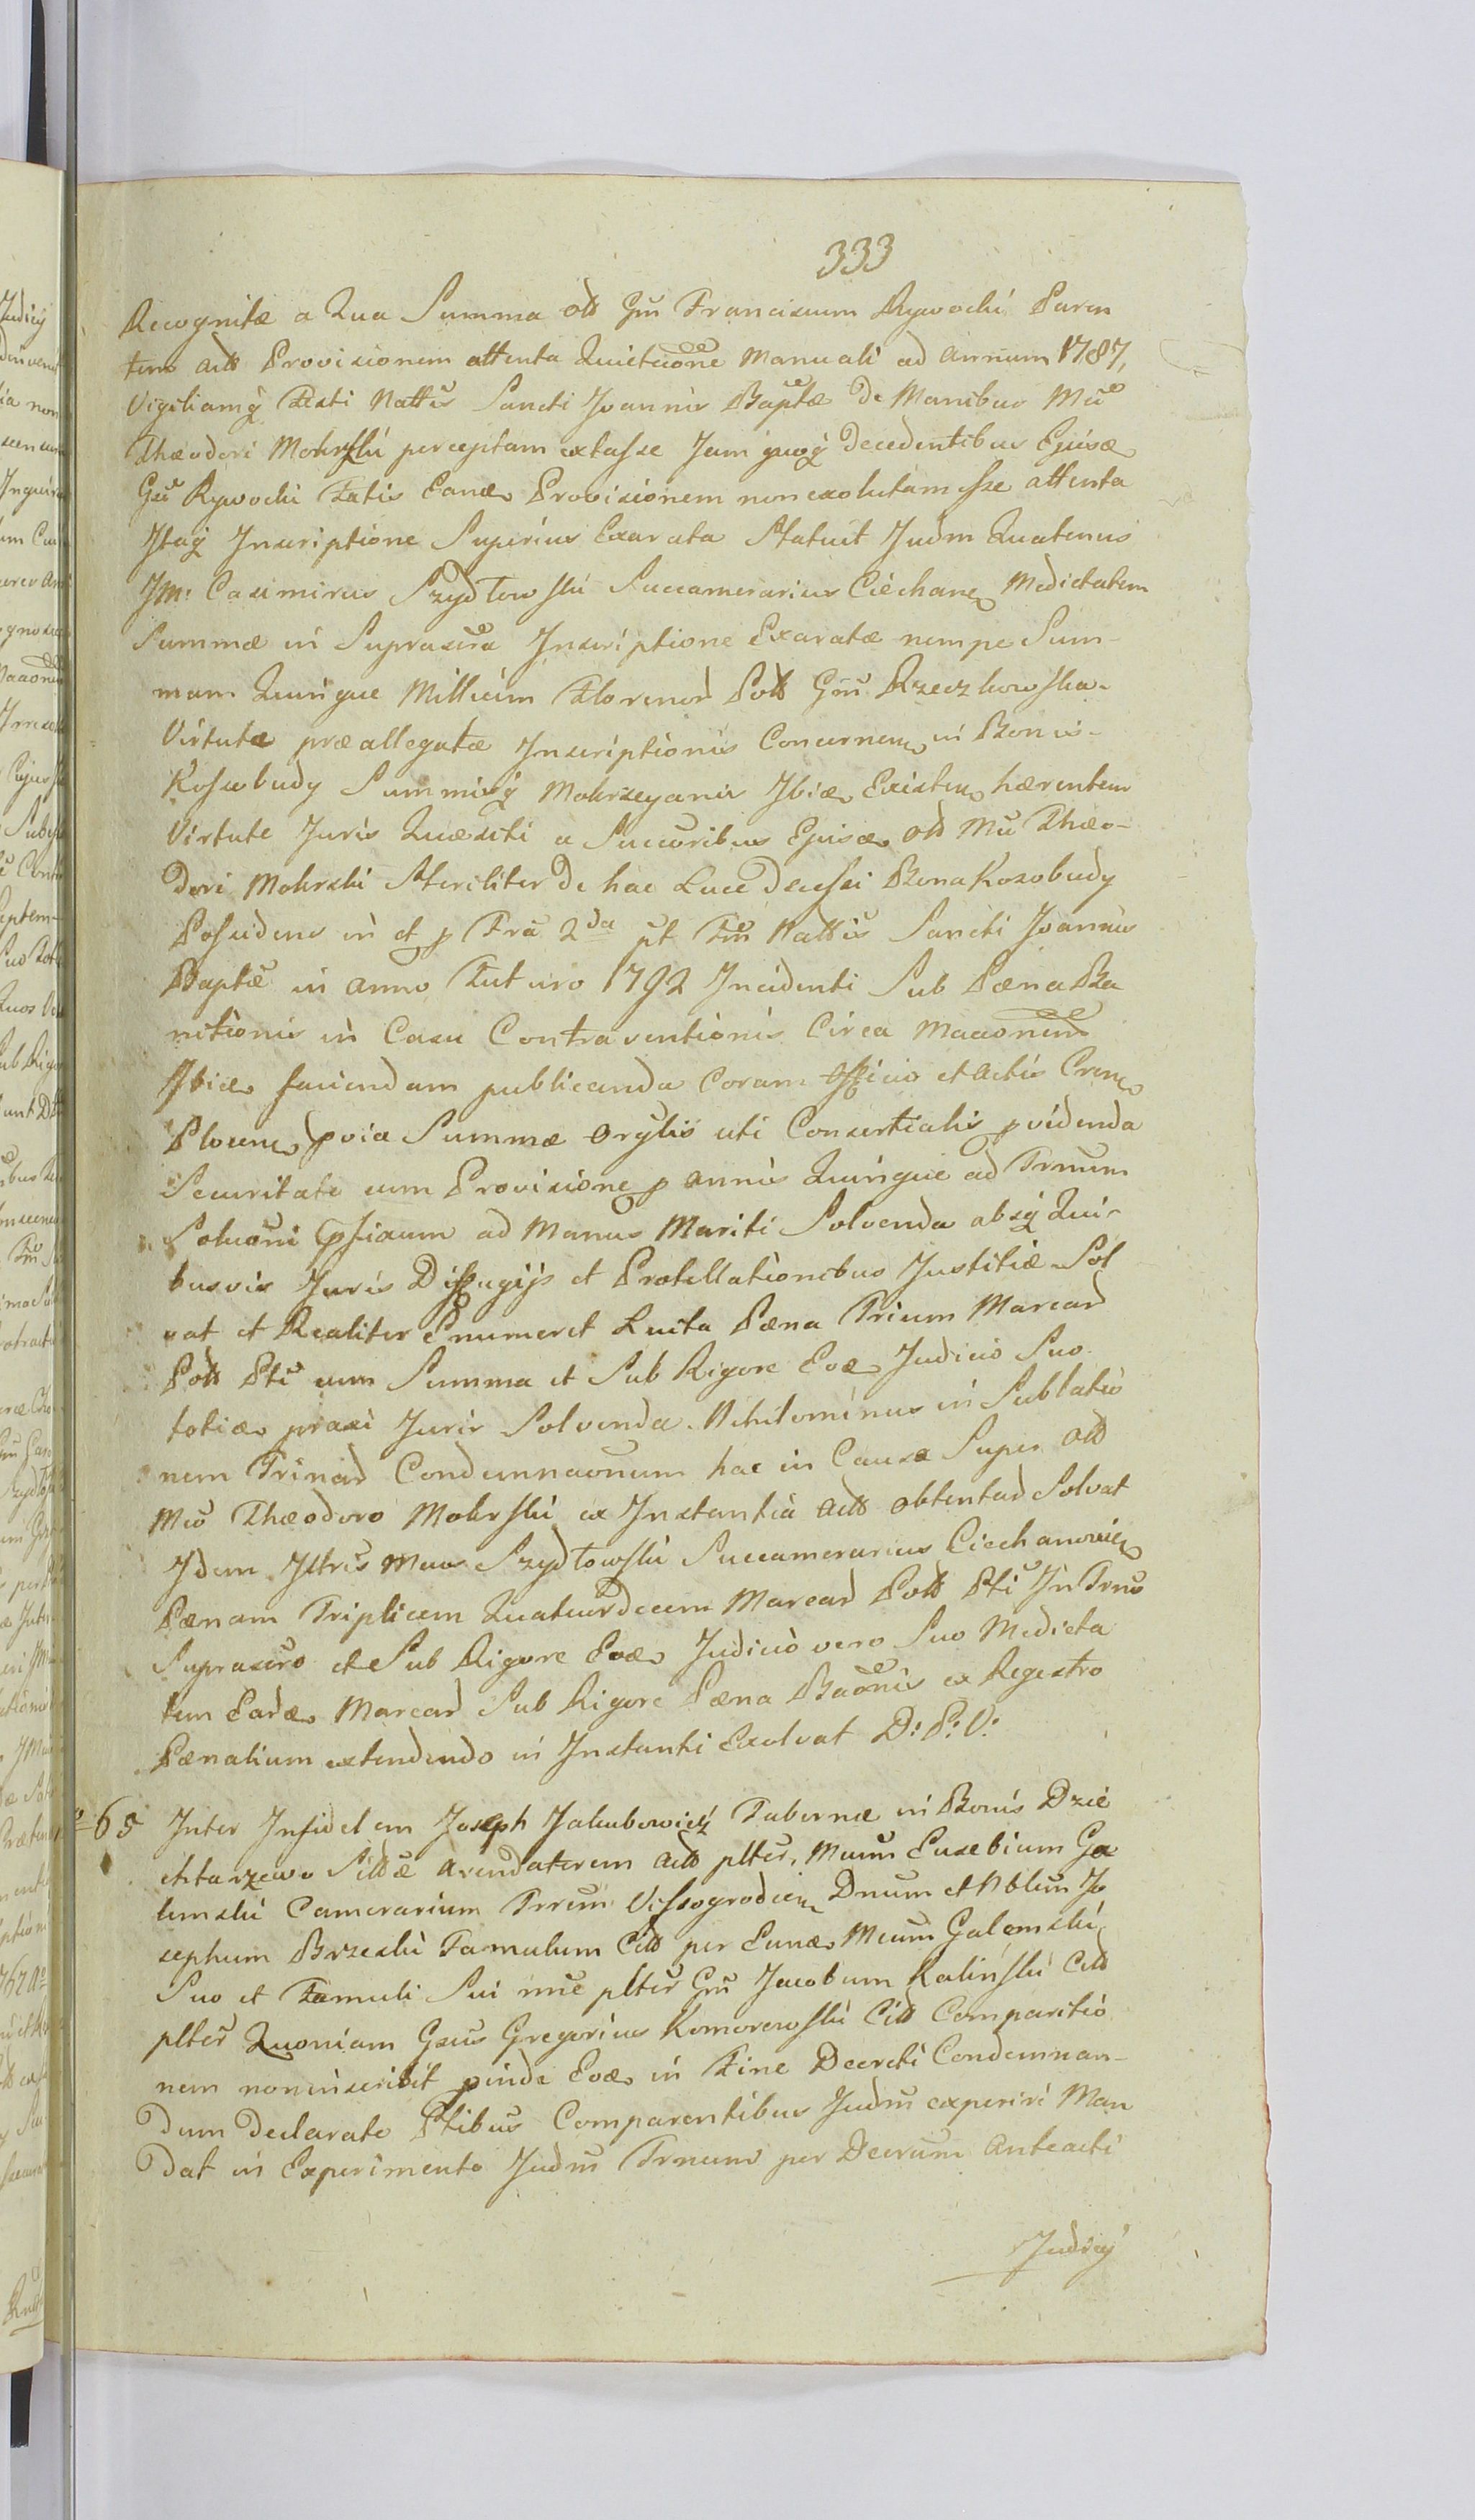 333
Recognitæ a Qua Summa olt Gm̃ Franciscum Rywocki Paren
tem actt Provisionem attenta Quietuoñe Manuali ad annum 1787,
Vigiliamq̃ Festi Nattis Sancti Joannis Baptæ De Manibus Mu̅
Thæodori Mokrski perceptam extasse Jam quoq̃ Decedentibus Ejusæ
Gsi Rywocki Fatis Eanæ Provisionem non exolutam esse attenta
Itaq̃ Inscriptione Superius Exarata Statuit Judm Quatenus
Jm: Casimirus Szydłowski Succamerarius Ciechanọ Medietatem
Summæ in Suprascra Inscriptione Exaratæ nempe Sum-
mam Quinque Millium Florenor Poll Gm̃ Rzeczkowska
Virtute præallegatæ Inscriptionis Concernen in Bonis-
Kossobudy Summisq̃ Mokrzeyanis Ibiæ Existen hærentem
Virtute Juris Quæsiti a Succoribus Ejusæ olt Mu̅ Thæo-
dori Mokrski Steriliter de hac Luce Decessi Bona Kosobudy
Possidens in et p Fra 2da pt Fm̃ Nattis Sancti Joannis
Baptæ in anno Futuro 1792 Incidenti Sub Pæna Ba
nitionis in Casu Contraventionis Circa Maaonem
Ibiæ faciendam publicanda Coram Officio et actis Cren
Plocen pvia Summæ Orglis uti Consertialis pvidenda
Securitate cum Provisione p annis Quinque ad Trnum
Soluoni pfixum ad Manus Mariti Solvenda absq̃ Qui-
busvis Juris Diffugijs et Protellationibus Justitiæ Sol
vat et Realiter Enumeret Luita Pæna Trium Marcar
Poll Pti cum Summa et Sub Rigore Evæ Judicio Suo
totiæ praxi Juris Solvenda. Nihilominus in Sublatio
nem Trinar Condemnaonum hac in Causa Super olt
Mco Thæodoro Mokrski ex Instantia actt obtentar Solvat
Idem Illris Mcus Szydłowski Succamerarius Ciechanovien
Pænam Triplicem Quatuordecem Marcar Poll Pti In Trno
Suprascro et Sub Rigore Evæ Judicio vero Suo Medieta
tem Earæ Marcar Sub Rigore Pæna Baonis ex Regestro
Pænalium extendendo in Instanti Exolvat D: P: V:
65 Inter Infidelem Joseph Jakubowicz Tabernæ in Bonis Dzie
chtarzewo Sittæ Arendatorem actt pltes, Mcum Eusebium Go
lemski Camerarium Trrum Vissogrodien Dnum et Nblem Jo
sephum Brzeski Famulum Citt per Eunæ Mcum Galemski
Suo et Famuli Sui nnie pltes Gm̃ Jacobum Kalinski Citt
pltes Quoniam Gsus Gregorius Komorowski Citt Comparitio
nem noninscribit pinde Evæ in Fine Decreti Condemnan-
dum Declarato Ptibus Comparentibus Judm experiri Man
dat in Experimento Judm Trnum per Decrum Anteacti
Judicij